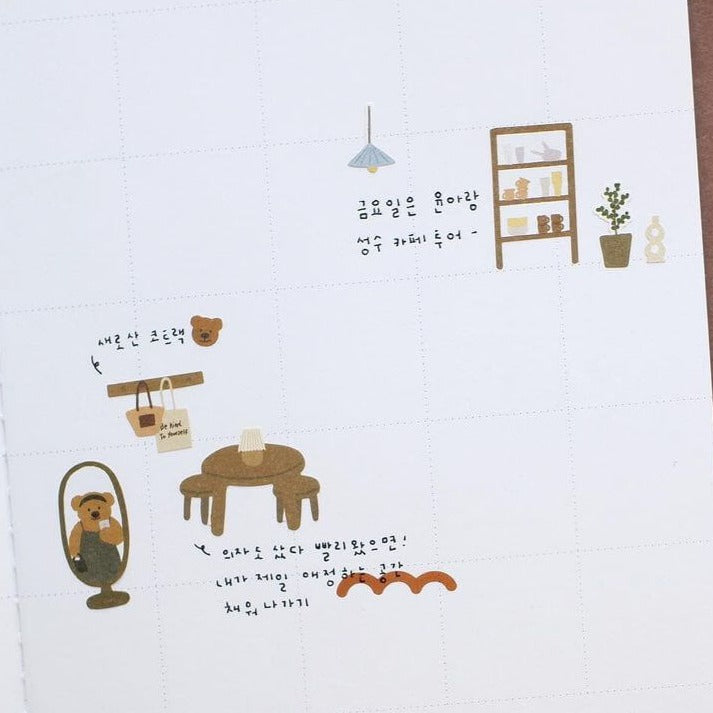 금요일은 윤아랑
성수 카페 투어 -
새로산 코트랙
Be Kind
To Yourself
의자도 샀다 빨리 왔으면!
내가 제일 애정하는 공간
채워 나가기